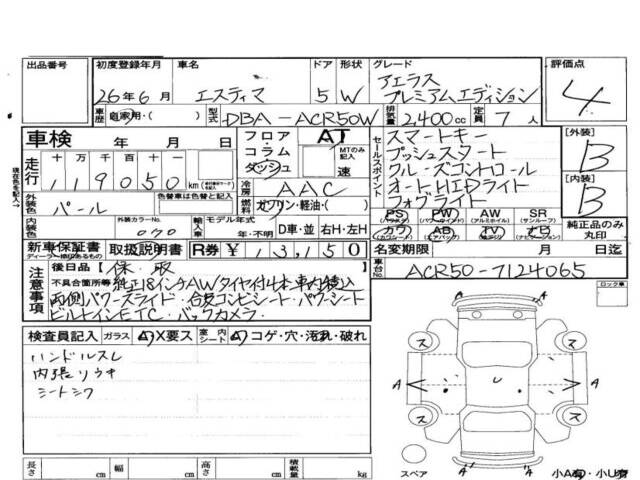 出品番号 初度登録年月 車名 ドア 形状 グレード 評価点
26年6月 エスティマ 5 W アエラス プレミアムエディション 4
車歴 自家用・( ) 型式 DBA-ACR50W 排気量 2,400cc 定員 7人
車検 年 月 日 フロア・コラム ダッシュ AT MTのみ記入 速
現在色を記入→
走行 十万 万 千 百 十 一 119050 km
冷房 AAC
外装色 パール 色替車は色替と記入 燃料 ガソリン・軽油・( )
内装色 外装カラーNo. 070 輸入車 モデル年式 年・不明 D車・並 右H・左H
セールスポイント スマートキー
プッシュスタート
クルーズコントロール
オートHIDライト
フォグライト
PS (パワステ) PW (パワーウィンドウ) AW (アルミホイル) SR (サンルーフ)
カワ (カワシート) AB (エアバッグ) TV (テレビ) ナビ (ナビゲーション)
[外装] B
[内装] B
純正品のみ丸印
新車保証書 取扱説明書 R券 ¥13,150 名変期限 月 日迄
ディーラー捺印のあるもの
車台No. ACR50-7124065
注意事項 後日品/保・取
不具合箇所等 純正18インチAWタイヤ付4本車内積込
両側パワースライド・合皮コンビシート・パワーシート
ビルトインETC バックカメラ
ロック車
検査員記入 ガラス A・X要ス 室内シート A・コゲ・穴・汚れ・破れ
ハンドルスレ
内張リウキ
シートシワ
A A U A A
ス ス ス ス
スペア A A 小A有・小U有
長さ cm 幅 cm 高さ cm 積載量 kg